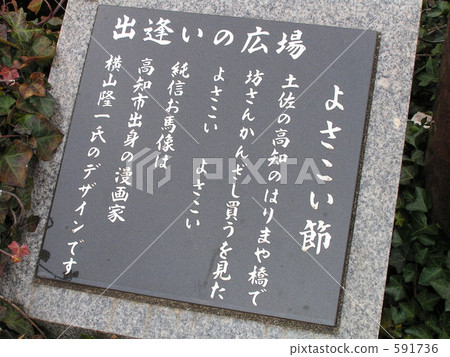 出逢いの広場
よさこい節
土佐の高知のはりまや橋で
坊さんかんざし買うを見た
よさこい　よさこい
純信お馬像は
高知市出身の漫画家
横山隆一氏のデザインです
PIXTA
pixta.jp - 591736